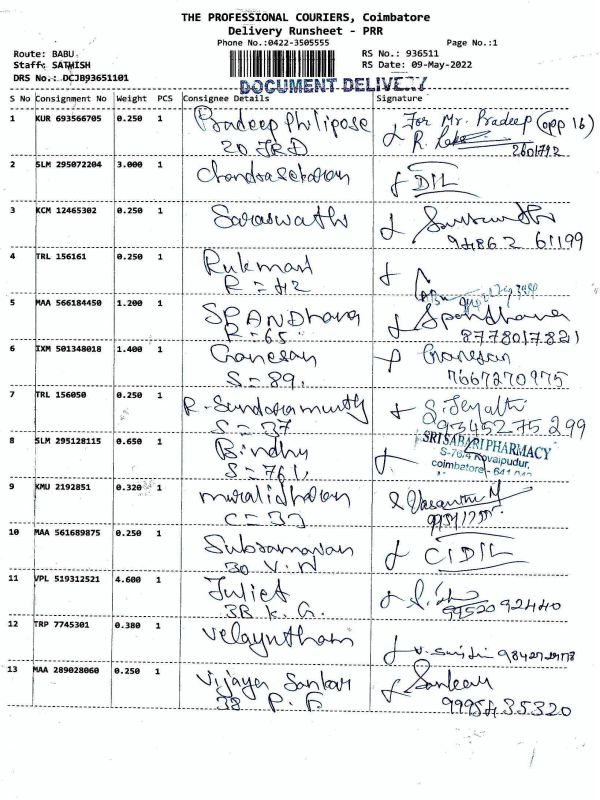 THE PROFESSIONAL COURIERS, Coimbatore
Delivery Runsheet - PRR
Phone No.:0422-3505555
Page No.:1
Route: BABU
RS No.: 936511
Staff: SATHISH
RS Date: 09-May-2022
DRS No.: DCJB93651101
DOCUMENT DELIVERY
S No Consignment No Weight PCS Consignee Details Signature
1 KUR 693566705 0.250 1 Pradeep Philipose For Mr. Pradeep (opp 16)
20 JRD R.
2 SLM 295072204 3.000 1 Chandrasekaran DIL
3 KCM 12465302 0.250 1 Saraswathi
94862 61199
4 TRL 156161 0.250 1 Rukmani
R = 42
5 MAA 566184450 1.200 1 SPANDhana Spandhana
R = 65 8778017821
6 IXM 501348018 1.400 1 Ganesan Ganesan
S = 89. 7667270975
7 TRL 156050 0.250 1 R. Sundaramurthy S. Jeyathi
S = 37 9345275299
8 SLM 295128115 0.650 1 Bindhu SRI SABARI PHARMACY
S = 76/4 S-76/4 Kovaipudur,
coimbatore - 641 042
9 KMU 2192851 0.320 1 muralidharan Vasantha M
10 MAA 561689875 0.250 1 Subramanian CIDIL
30 V.N
11 VPL 519312521 4.600 1 Juliet
3B K. G. 99520 92440
12 TRP 7745301 0.380 1 Velayutham
13 MAA 289028060 0.250 1 Vijaya Sankar Sankar
38 P. F 99954 35320